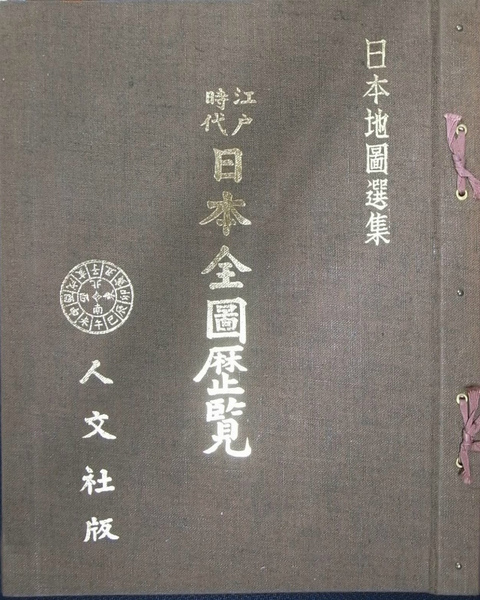 日本地圖選集
江戸時代
日本全圖歴覧
人文社版
北
南